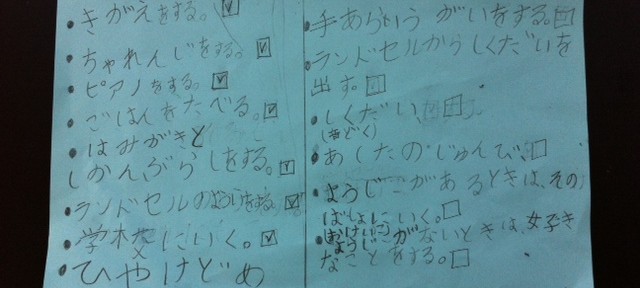 ・きがえをする。☑
・ちゃれんじをする。☑
・ピアノをする。☑
・ごはんをたべる。☑
・はみがきと
しかんぶらしをする。☑
・ランドセルのよういをする。☑
・学校にいく。☑
・ひやけどめ
手あらいうがいをする。
・ランドセルからしくだいを
出す。□
・しくだい、
(おどく)
・あしたのじゅんび、□
・ようじこがあるときは、その
ばしょにいく。□
・ようじこがないときは、女子き
なことをする。□